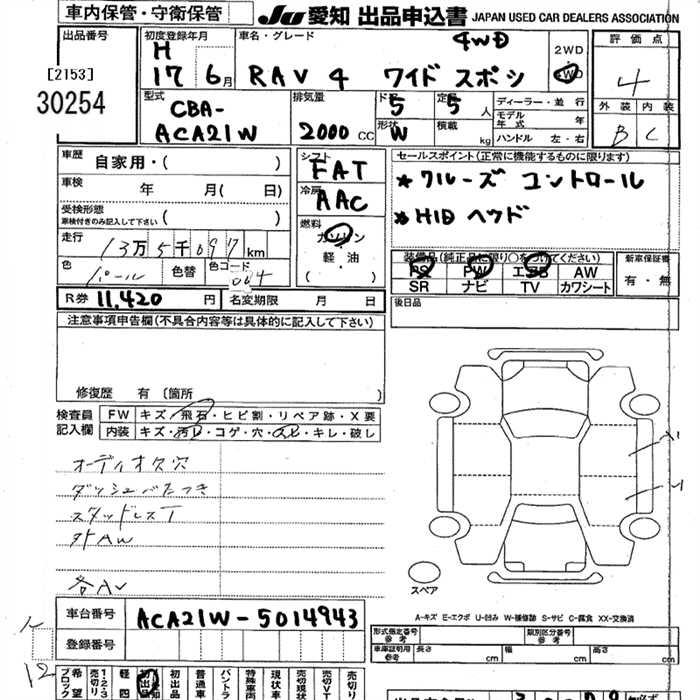 車内保管・守衛保管
JU 愛知 出品申込書 JAPAN USED CAR DEALERS ASSOCIATION
出品番号
[2153]
30254
初度登録年月
H
17 6月
車名・グレード
4WD
RAV4 ワイド スポシ
2WD
4WD
評価点
4
外装 内装
B C
型式
CBA-
ACA21W
排気量
2000 CC
ドア
5
定員
5 人
形状
W
積載
kg
ディーラー・並行
モデル年式 年
ハンドル 左・右
車歴 自家用・( )
車検 年 月( 日)
受検形態
車検付きのみ記入して下さい ( )
走行 13万5千097km
色 パール 色替 色コード 064
R券 11,420 円 名変期限 月 日
シフト
FAT
冷房
AAC
燃料
ガソリン
軽・油
( )
セールスポイント(正常に機能するものに限ります)
*クルーズ コントロール
*HID ヘッド
装備品(純正品に限り○をつけてください)
PS PW エアB AW
SR ナビ TV カワシート
新車保証書
有・無
後日品
注意事項申告欄(不具合内容等は具体的に記入して下さい)
修復歴 有 〔箇所 〕
検査員記入欄
FW キズ・飛石・ヒビ割・リペア跡・X要
内装 キズ・汚レ・コゲ・穴・スレ・キレ・破し
オーディオ欠穴
ダッシュベタつき
スタッドレスT
外AW
各AU
スペア
A-キズ E-エクボ U-凹み W-補修跡 S-サビ C-腐食 XX-交換済
車台番号 ACA21W-5014943
登録番号
形式指定番号
参考
類別区分番号
参考
車庫証明用
参考
長さ cm 幅 cm 高さ cm
12
希望ブロック
売切り
1・2・3
軽四
初出品
普通車
バントラ
特殊車両
現状車
売切現状
売切VT
売切り